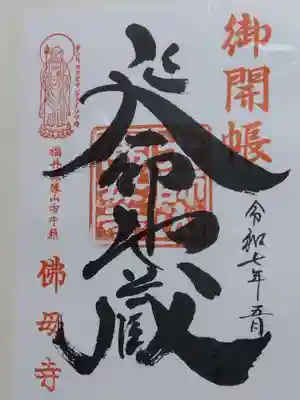 御開帳
令和七年五月
延命地蔵
福井県勝山市
佛母寺